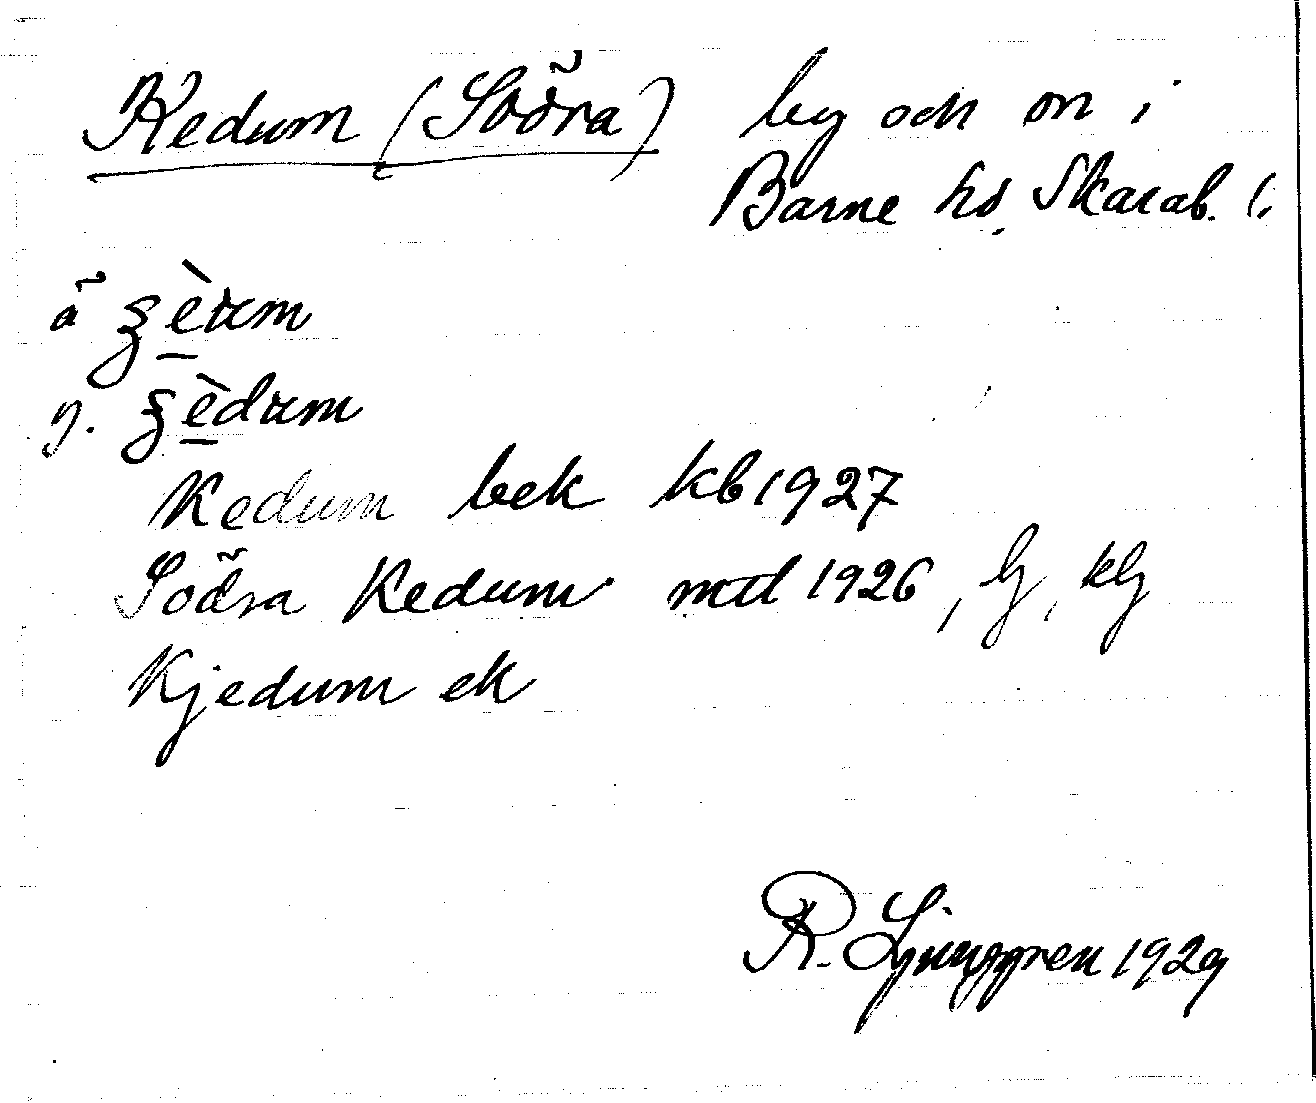 Kedum (Södra) by och sn i
Barne hd. Skarab. l.
ä ʒèum
y. ʒèdum
Kedum bek kb 1927
Södra Kedum mtl 1926, lj, klj
Kjedum ek
R. Ljunggren 1929